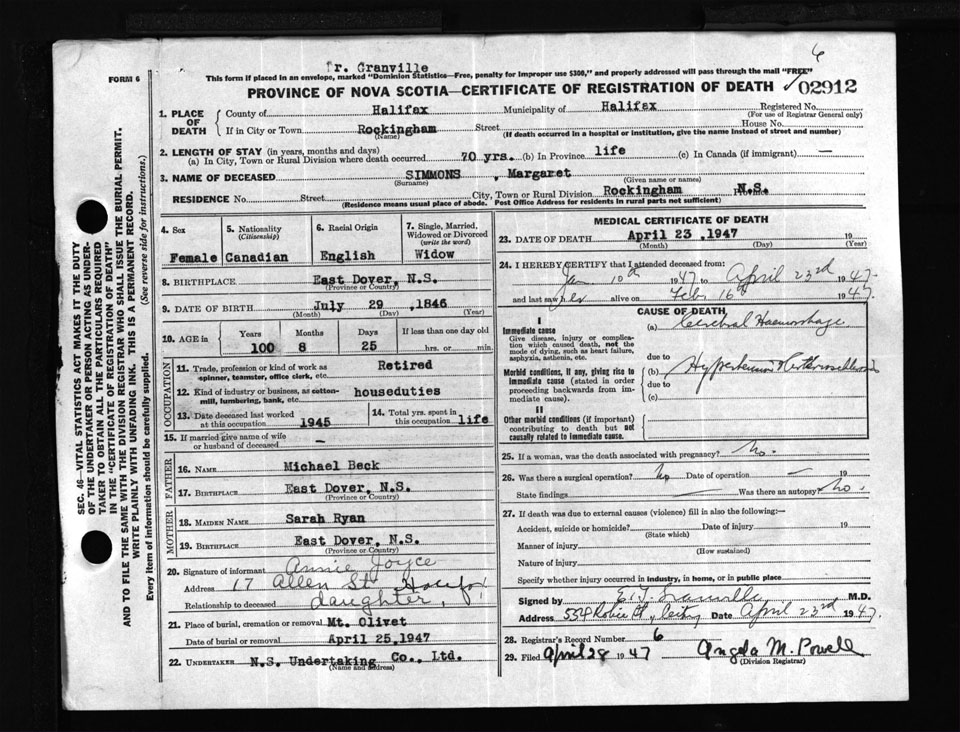 6
Dr. Granville
FORM 6
This form if placed in an envelope, marked "Dominion Statistics—Free, penalty for improper use $300," and properly addressed will pass through the mail "FREE"
PROVINCE OF NOVA SCOTIA—CERTIFICATE OF REGISTRATION OF DEATH 02912
SEC. 46—VITAL STATISTICS ACT MAKES IT THE DUTY
OF THE UNDERTAKER OR PERSON ACTING AS UNDER-
TAKER TO OBTAIN ALL THE PARTICULARS REQUIRED
IN THE "CERTIFICATE OF REGISTRATION OF DEATH"
AND TO FILE THE SAME WITH THE DIVISION REGISTRAR WHO SHALL ISSUE THE BURIAL PERMIT.
WRITE PLAINLY WITH UNFADING INK. THIS IS A PERMANENT RECORD.
Every item of information should be carefully supplied. (See reverse side for instructions.)
1. PLACE OF DEATH
County of Halifax Municipality of Halifax Registered No.
(For use of Registrar General only)
If in City or Town Rockingham Street House No.
(Name) (If death occurred in a hospital or institution, give the name instead of street and number)
2. LENGTH OF STAY (in years, months and days)
(a) In City, Town or Rural Division where death occurred 70 yrs. (b) In Province life (c) In Canada (if immigrant) —
3. NAME OF DECEASED SIMMONS, Margaret
(Surname) (Given name or names)
RESIDENCE No. Street City, Town or Rural Division Rockingham N.S.
(Residence means usual place of abode. Post Office Address for residents in rural parts not sufficient)
4. Sex Female
5. Nationality (Citizenship) Canadian
6. Racial Origin English
7. Single, Married, Widowed or Divorced (write the word) Widow
8. BIRTHPLACE East Dover, N.S.
(Province or Country)
9. DATE OF BIRTH July 29 1846
(Month) (Day) (Year)
10. AGE in Years 100 Months 8 Days 25 If less than one day old hrs. or min.
OCCUPATION
11. Trade, profession or kind of work as spinner, teamster, office clerk, etc. Retired
12. Kind of industry or business, as cotton-mill, lumbering, bank, etc. houseduties
13. Date deceased last worked at this occupation 1945
14. Total yrs. spent in this occupation life
15. If married give name of wife or husband of deceased –
FATHER
16. NAME Michael Beck
17. BIRTHPLACE East Dover, N.S.
(Province or Country)
MOTHER
18. MAIDEN NAME Sarah Ryan
19. BIRTHPLACE East Dover, N.S.
(Province or Country)
20. Signature of informant Annie Joyce
Address 17 Allen St. Halifax
Relationship to deceased daughter
21. Place of burial, cremation or removal Mt. Olivet
Date of burial or removal April 25, 1947
22. UNDERTAKER N.S. Undertaking Co., Ltd.
(Name and address)
MEDICAL CERTIFICATE OF DEATH
23. DATE OF DEATH April 23, 1947 19
(Month) (Day) (Year)
24. I HEREBY CERTIFY that I attended deceased from:
Jan 10th 1947 to April 23rd 1947
and last saw her alive on Feb. 16th 1947.
CAUSE OF DEATH
I
Immediate cause
Give disease, injury or complication which caused death, not the mode of dying, such as heart failure, asphyxia, asthenia, etc.
(a) Cerebral Haemorrhage
due to
Morbid conditions, if any, giving rise to immediate cause (stated in order proceeding backwards from immediate cause).
(b) Hypertension
due to
(c)
II
Other morbid conditions (if important) contributing to death but not causally related to immediate cause.
25. If a woman, was the death associated with pregnancy? No.
26. Was there a surgical operation? No Date of operation — 19
State findings — Was there an autopsy? No.
27. If death was due to external causes (violence) fill in also the following:—
Accident, suicide or homicide? Date of injury 19
(State which)
Manner of injury
(How sustained)
Nature of injury
Specify whether injury occurred in industry, in home, or in public place
Signed by M.D.
Address Robie St., City Date April 23rd 1947.
28. Registrar's Record Number 6
29. Filed April 28 1947 Angela M. Powell
(Division Registrar)